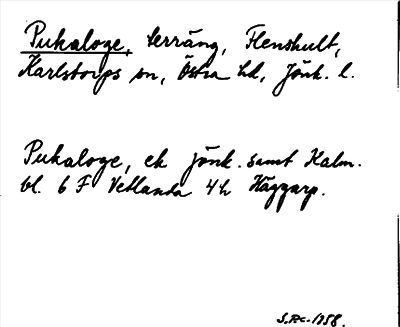 Pukaloge, terräng, Flenshult,
Karlstorps sn, Östra hd, Jönk. l.
Pukaloge, ek jönk. samt Kalm.
bl. 6 F Vetlanda 4h Häggarp.
1958.